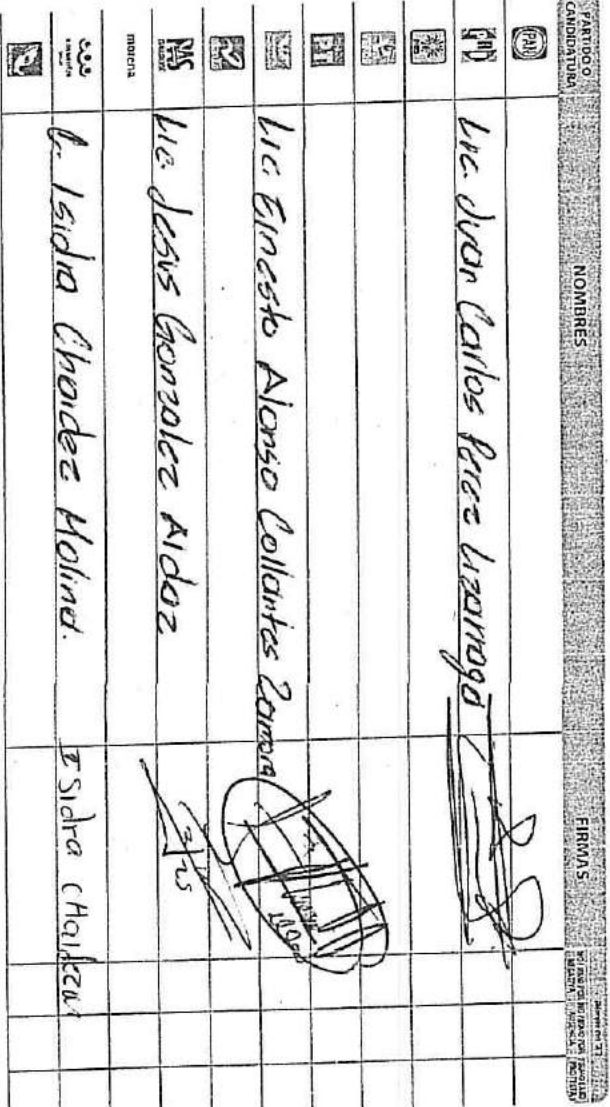 PARTIDO O
CANDIDATURA
NOMBRES
FIRMAS
PAN
Lic. Juan Carlos Perez Lizarraga
PT
Lic. Ernesto Alonso Collantes Zamora
PAS
Lic. Jesus Gonzalez Aldaz
morena
C. Isidra Chaidez Molina.
Isidra CHaidezM